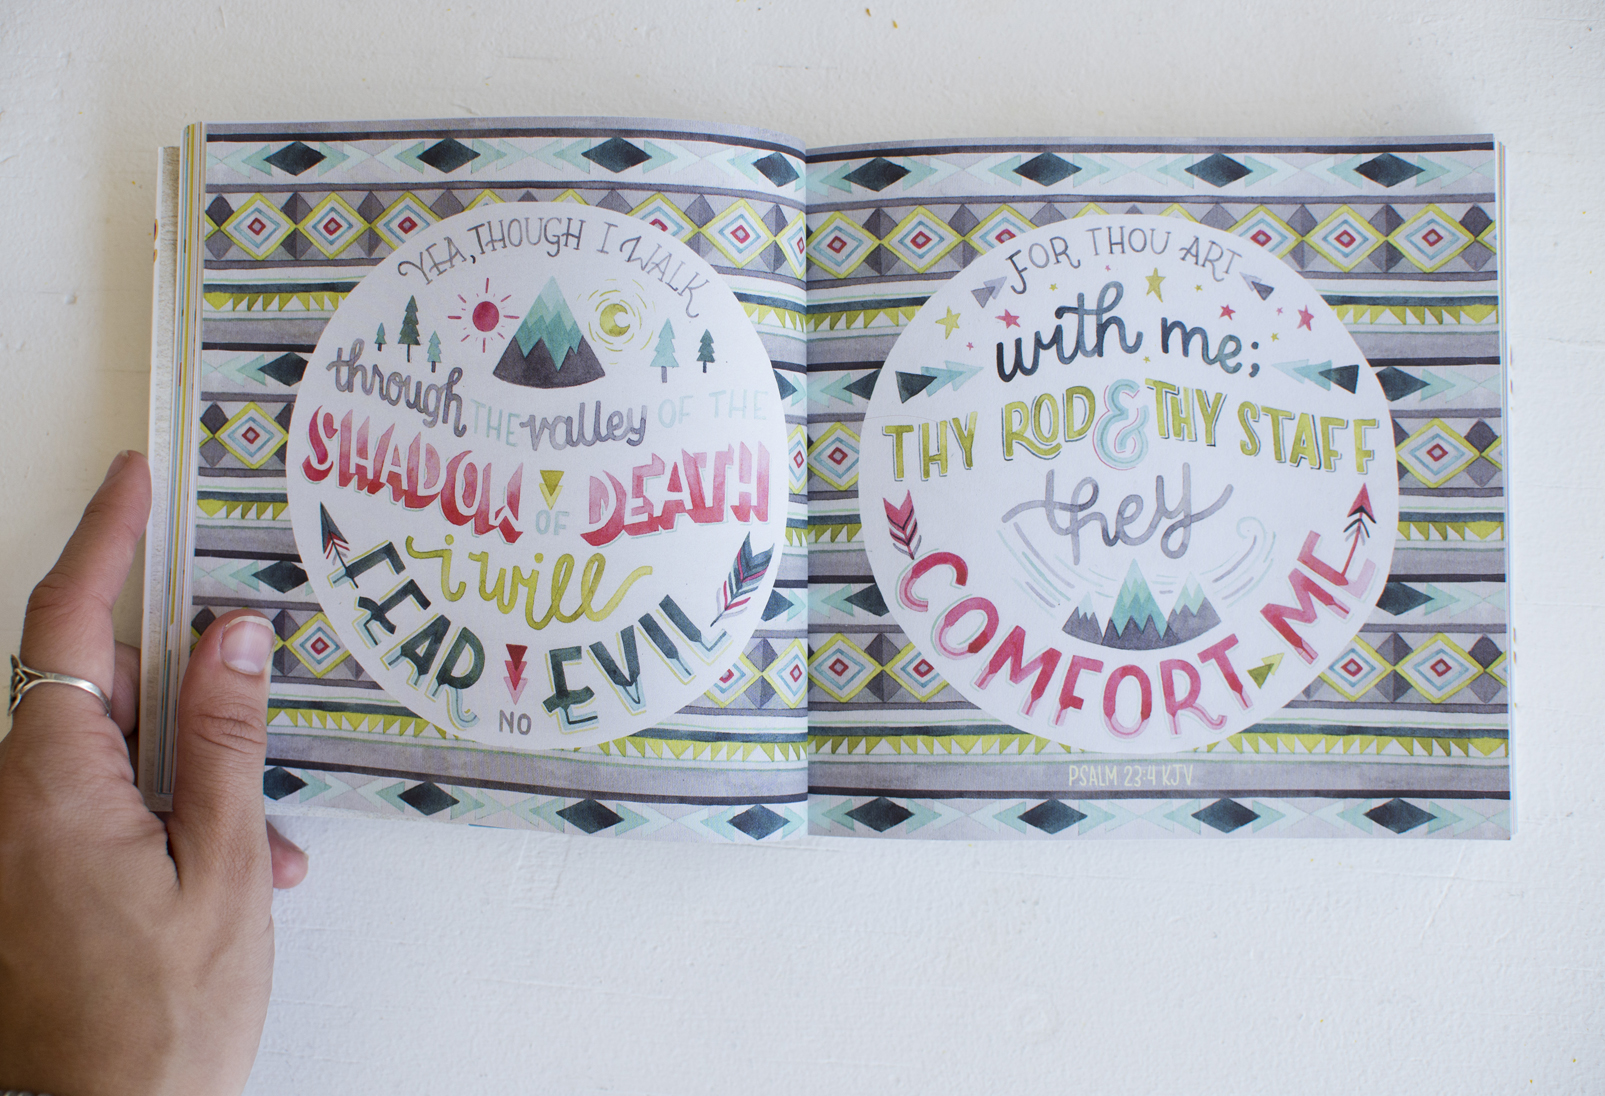 YEA, THOUGH I WALK
through THE valley OF THE
SHADOW OF DEATH
i will
FEAR NO EVIL
FOR THOU ART
with me;
THY ROD & THY STAFF
they
COMFORT ME
PSALM 23:4 KJV